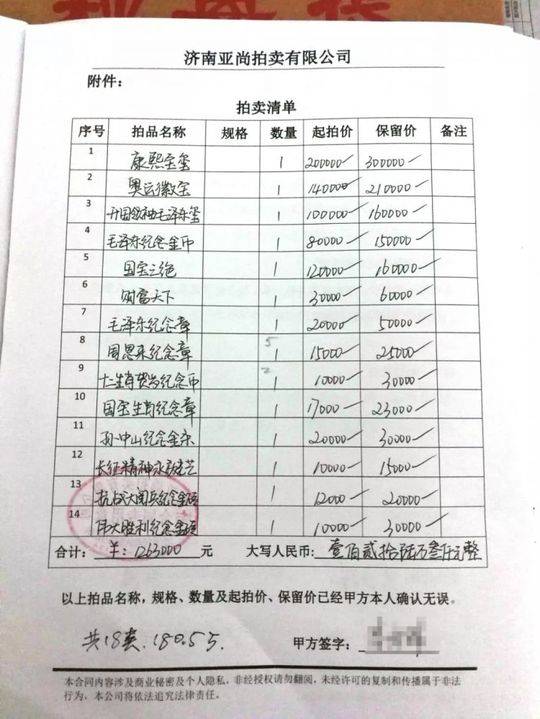 济南亚尚拍卖有限公司
附件：
拍卖清单
序号 拍品名称 规格 数量 起拍价 保留价 备注
1 康熙宝玺 1 200000 300000
2 奥运徽宝 1 140000 210000
3 开国领袖毛泽东玺 1 100000 160000
4 毛泽东纪念金币 1 80000 150000
5 国宝三绝 1 120000 160000
6 财富天下 1 30000 60000
7 毛泽东纪念章 1 20000 50000
8 周恩来纪念章 5 1 15000 25000
9 十二生肖贺岁纪念币 2 1 10000 30000
10 国宝生肖纪念章 1 17000 23000
11 孙中山纪念金条 1 20000 30000
12 长征精神永放光芒 1 10000 15000
13 抗战大阅兵纪念金砖 1 12000 20000
14 伟大胜利纪念金砖 1 10000 30000
合计： ￥：1263000 元 大写人民币： 壹佰贰拾陆万叁仟元整
以上拍品名称，规格、数量及起拍价、保留价已经甲方本人确认无误。
共18套. 180.55. 甲方签字：
本合同内容涉及商业秘密及个人隐私，非经授权请勿翻阅，未经许可的复制和传播属于非法
行为，本公司将依法追究法律责任。